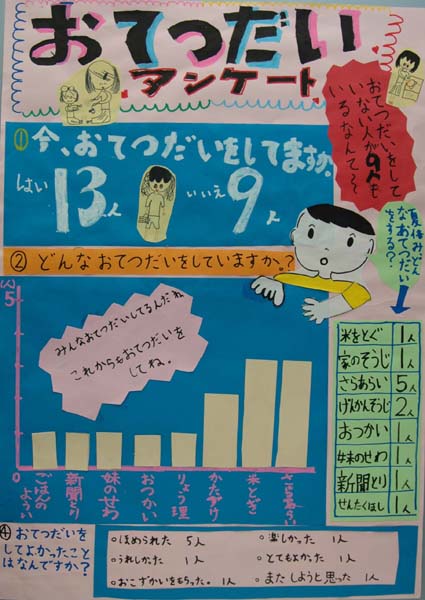 おてつだい
アンケート
おてつだいをして
いない人が9人も
いるなんて～
①今、おてつだいをしてますか。
はい 13人 いいえ 9人
夏休み、どん
なおてつだい
をする？
②どんなおてつだいをしていますか。？
(人)
5
みんなおてつだいしてるんだね
これからもおてつだいを
してね。
0
ごはんの
ようい
新聞とり
妹のせわ
おつかい
りょう理
かたづけ
米とぎ
さらあらい
米をとぐ 1人
家のそうじ 1人
さらあらい 5人
げんかんそうじ 2人
おつかい 1人
妹のせわ 1人
新聞とり 1人
せんたくほし 1人
④おてつだいを
してよかったこと
はなんですか？
○ほめられた 5人 ○楽しかった 1人
○うれしかった 1人 ○とてもよかった 1人
○おこずかいをもらった。 1人 ○またしようと思った 1人